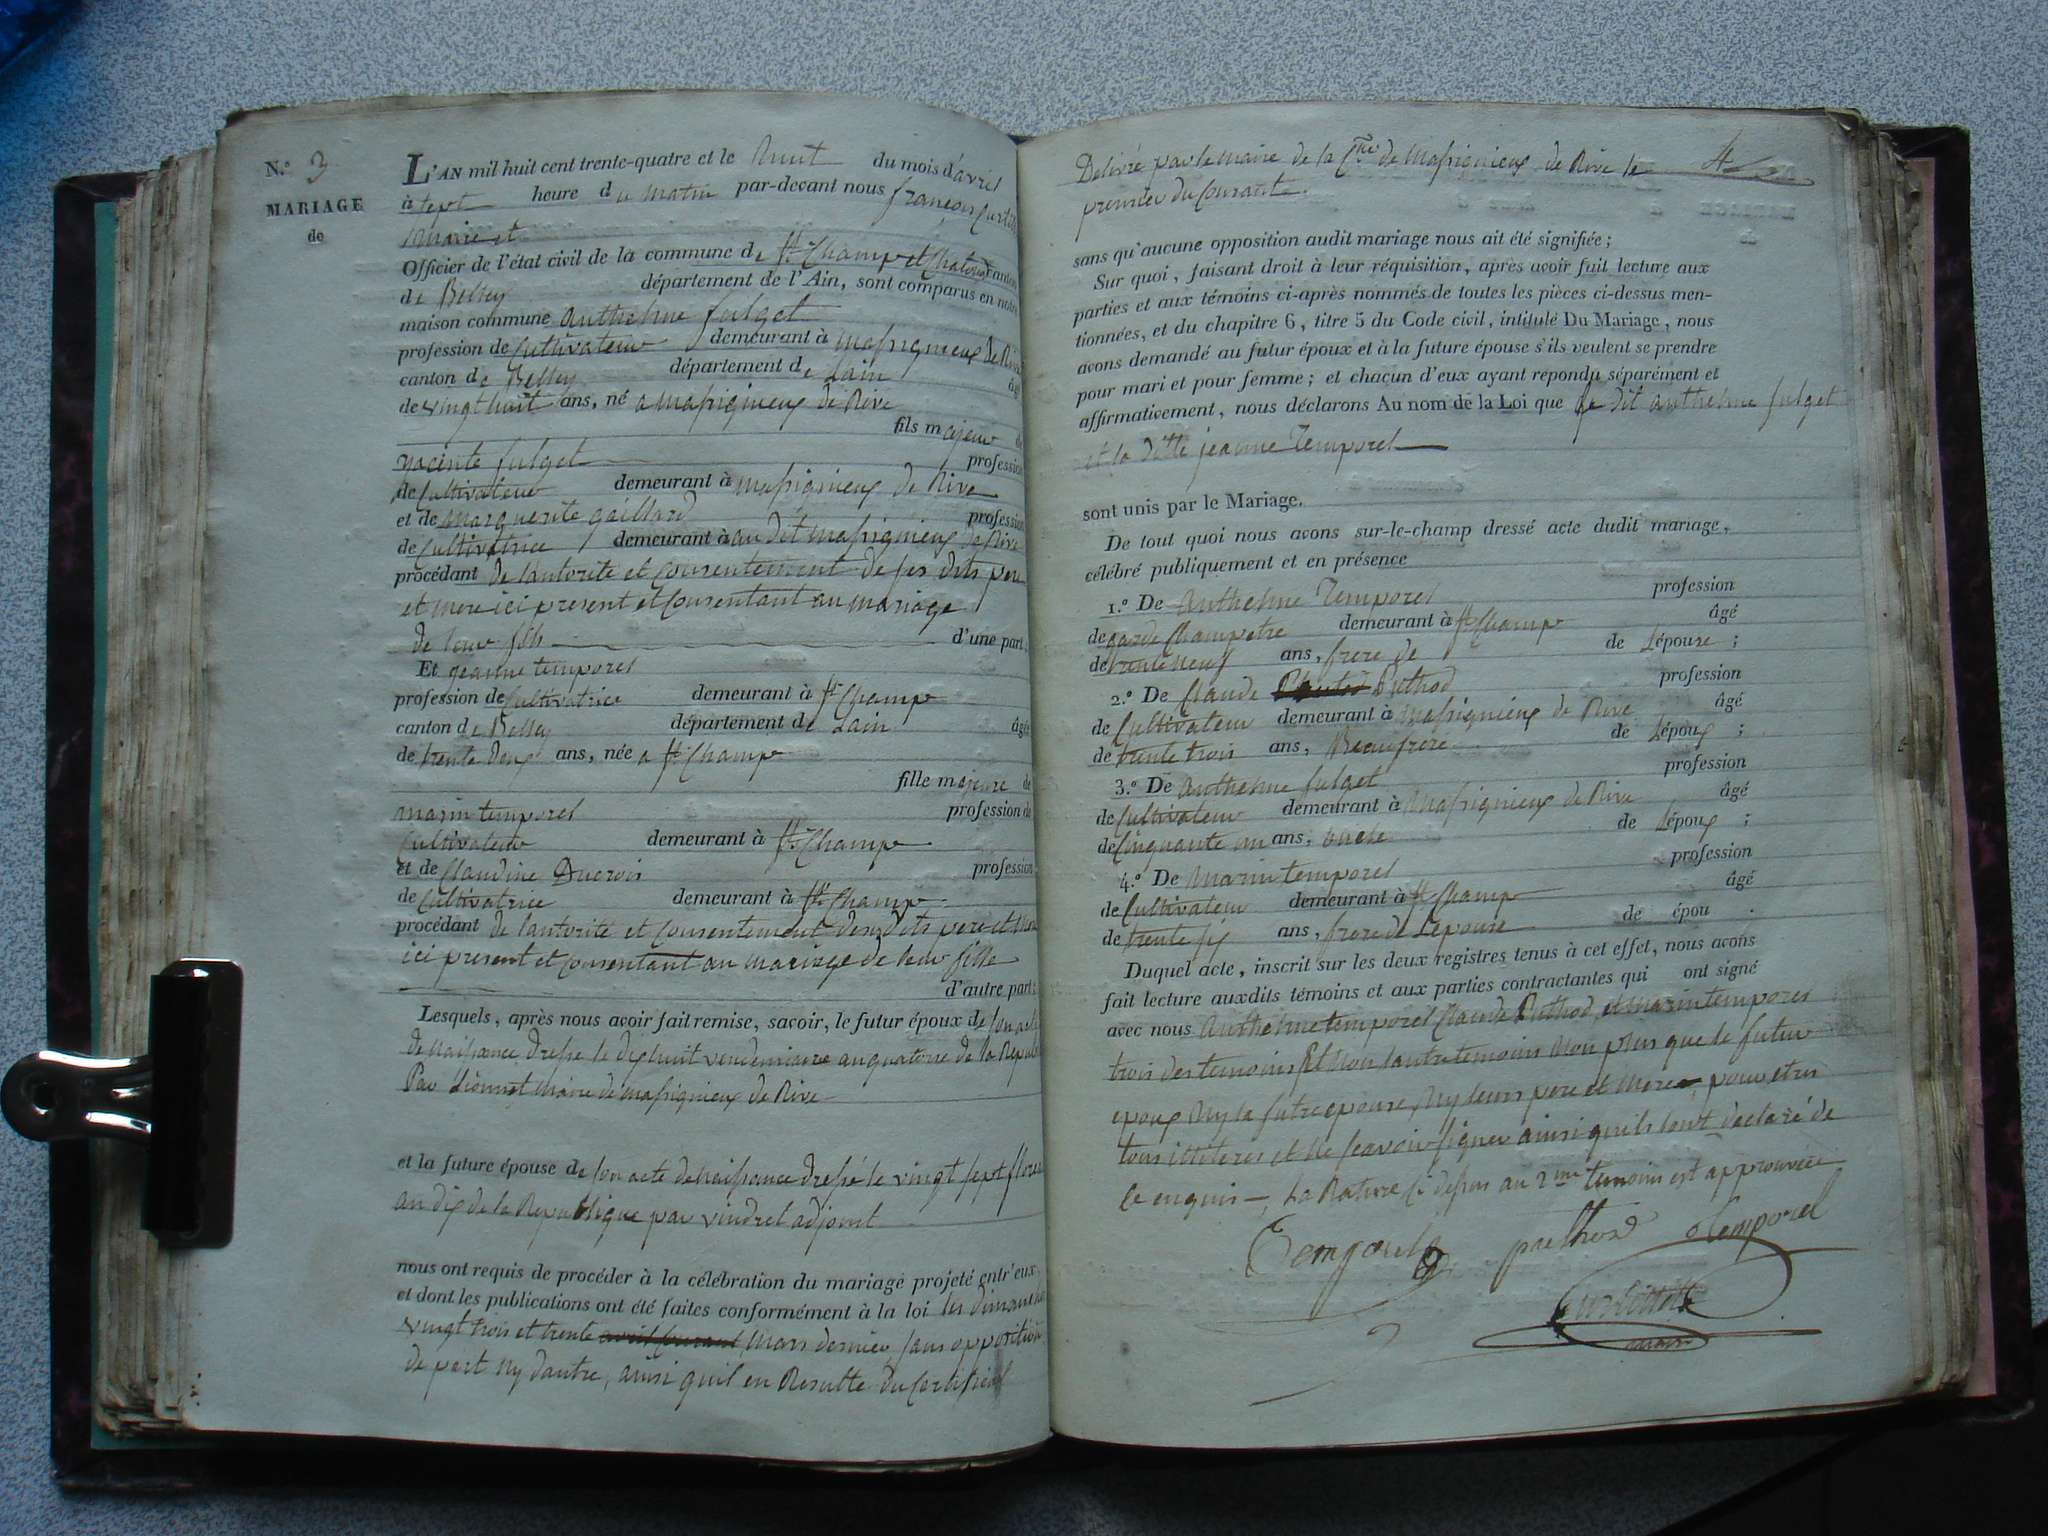 N.º 3
MARIAGE
de
L'AN mil huit cent trente-quatre et le huit du mois d'avril
à sept heure du matin par-devant nous françois
Maire et
Officier de l'état civil de la commune de St Champ et Chatonod canton
de Belley département de l'Ain, sont comparus en notre
maison commune anthelme fulget
profession de Cultivateur demeurant à Massignieux de Rive
canton de Belley département de Lain âgé
de vingt huit ans, né a Massignieux de Rive
fils majeur de
yacinte fulget profession
de Cultivateur demeurant à Massignieux de Rive
et de Marguerite gaillard profession
de Cultivatrice demeurant à au dit Massignieux de Rive
procédant de lautorite et Consentement de ses dits pere
et mere ici present et Consentant au mariage
de leur fils d'une part;
Et jeanne temporel
profession de Cultivatrice demeurant à St Champ
canton de Belley département de Lain âgée
de trente deux ans, née a St Champ
fille majeure de
marin temporel profession de
Cultivateur demeurant à St Champ
et de Claudine Ducrois profession
de Cultivatrice demeurant à St Champ
procédant de lautorité et Consentement desdits pere et mere
ici present et Consentant au mariage de leur fille
d'autre part;
Lesquels, après nous avoir fait remise, savoir, le futur époux de son acte
de naissance dressé le dix huit vendemiaire an quatorze de la Republ
Par Lionnet Maire de Massignieux de Rive
et la future épouse de son acte de naissance dressé le vingt sept floreal
an dix de la Republique par vindret adjoint
nous ont requis de procéder à la célébration du mariage projeté entr'eux,
et dont les publications ont été faites conformément à la loi les dimanche
vingt trois et trente avril Courant Mars dernier, sans opposition
de part ny dautre, ainsi quil en Resulte du Certificat
Delivré par le maire de la Cne de Massignieux de Rive le
premier du Courant.
sans qu'aucune opposition audit mariage nous ait été signifiée;
Sur quoi, faisant droit à leur réquisition, après avoir fait lecture aux
parties et aux témoins ci-après nommés de toutes les pièces ci-dessus men-
tionnées, et du chapitre 6, titre 5 du Code civil, intitulé Du Mariage, nous
avons demandé au futur époux et à la future épouse s'ils veulent se prendre
pour mari et pour femme; et chacun d'eux ayant répondu séparément et
affirmativement, nous déclarons Au nom de la Loi que le dit anthelme fulget
et la ditte jeanne Temporel
sont unis par le Mariage.
De tout quoi nous avons sur-le-champ dressé acte dudit mariage,
célébré publiquement et en présence
1.º De anthelme Temporel profession
de garde Champetre demeurant à St Champ âgé
de trente neuf ans, frere de de Lépouse;
2.º De Claude Puthod profession
de Cultivateur demeurant à Massignieux de Rive âgé
de trente trois ans, Beaufrere de Lépoux;
3.º De anthelme fulget profession
de Cultivateur demeurant à Massignieux de Rive âgé
de Cinquante un ans, oncle de Lépoux;
4.º De Marin temporel profession
de Cultivateur demeurant à St Champ âgé
de trente six ans, frere de Lepouse de épou .
Duquel acte, inscrit sur les deux registres tenus à cet effet, nous avons
fait lecture auxdits témoins et aux parties contractantes qui ont signé
avec nous Anthelme temporel Claude Puthod, et Marin temporel
trois des temoins Et non lautre temoins non plus que le futur
epoux Ny la futre epouse, Ny leurs pere et Mere, pour etre
tous ilitteres et ne scavoir signer ainsi quils lont declaré de
ce enquis —, La Rature Ci dessus au 2me temoins est approuvée
Temporel puthod temporel
maire